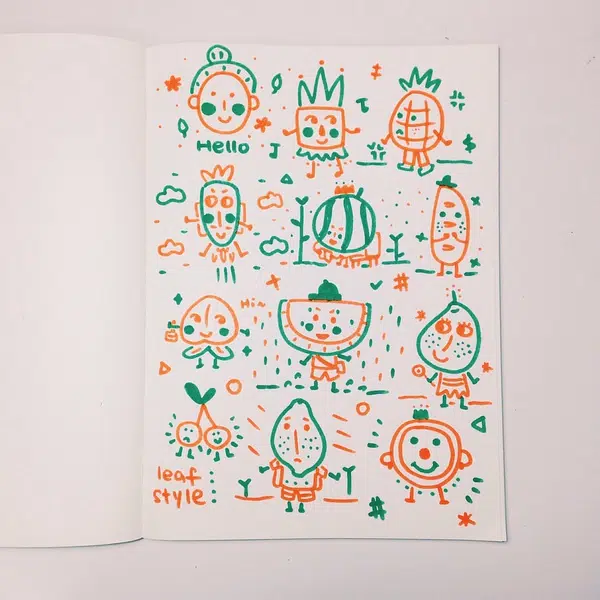 Hello
Hi~
leaf
style: